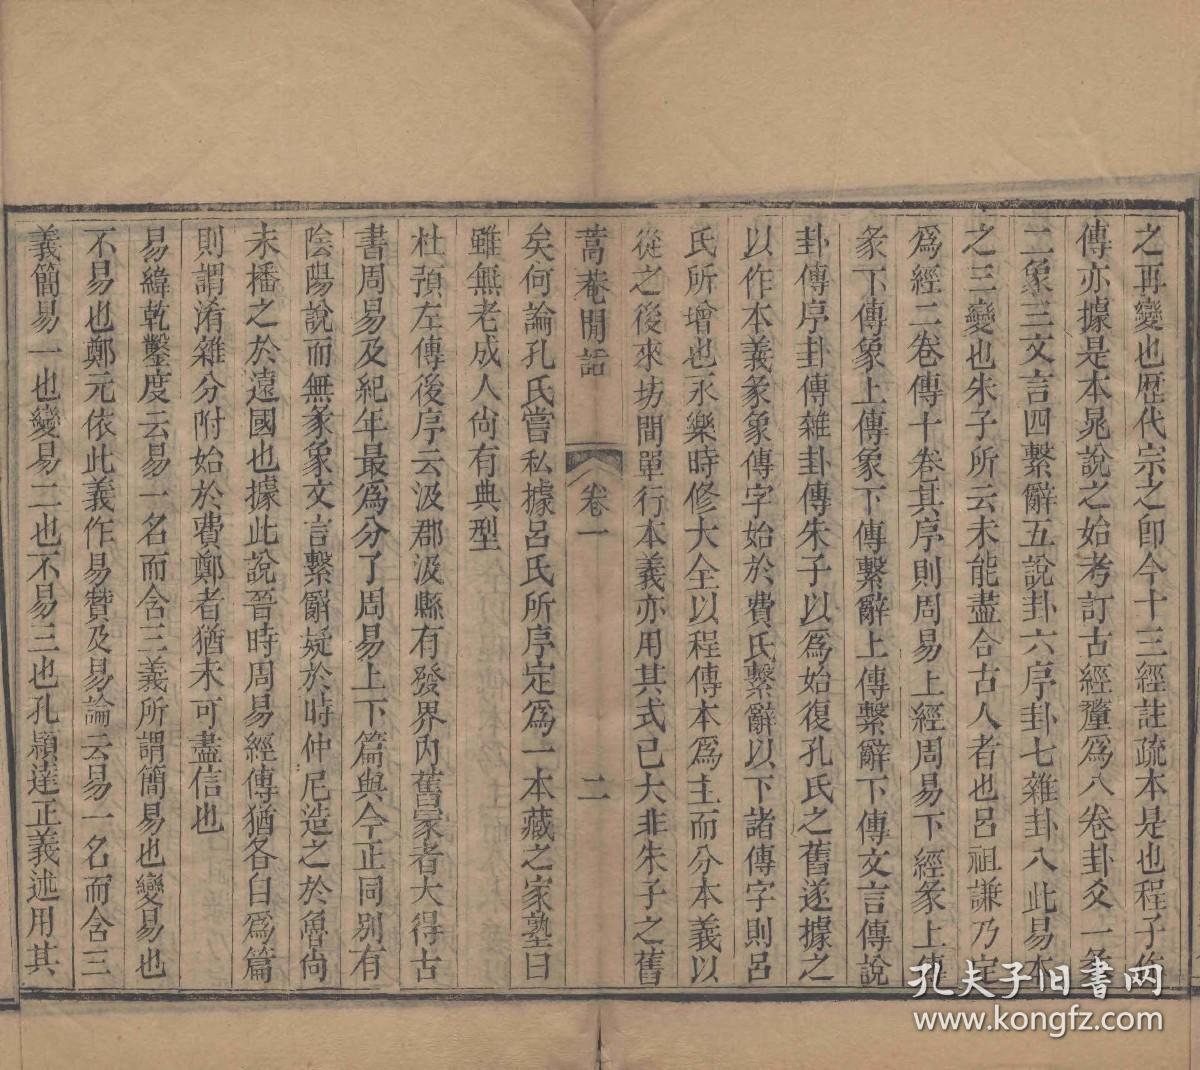 之再變也歷代宗之卽今十三經註疏本是也程子作
傳亦據是本晁說之始考訂古經釐爲八卷卦爻一彖
二象三文言四繫辭五說卦六序卦七雜卦八此易本
之三變也朱子所云未能盡合古人者也呂祖謙乃定
爲經二卷傳十卷其序則周易上經周易下經彖上傳
彖下傳象上傳象下傳繫辭上傳繫辭下傳文言傳說
卦傳序卦傳雜卦傳朱子以爲始復孔氏之舊遂據之
以作本義彖象傳字始於費氏繫辭以下諸傳字則呂
氏所增也永樂時修大全以程傳本爲主而分本義以
從之後來坊間單行本義亦用其式已大非朱子之舊
蒿菴閒話 卷一 二
矣何論孔氏嘗私據呂氏所序定爲一本藏之家塾曰
雖無老成人尙有典型
杜預左傳後序云汲郡汲縣有發界內舊冢者大得古
書周易及紀年最爲分了周易上下篇與今正同別有
陰陽說而無彖象文言繫辭疑於時仲尼造之於魯尙
未播之於遠國也據此說晉時周易經傳猶各自爲篇
則謂淆雜分附始於費鄭者猶未可盡信也
易緯乾鑿度云易一名而含三義所謂簡易也變易也
不易也鄭元依此義作易贊及易論云易一名而含三
義簡易一也變易二也不易三也孔穎達正義述用其
孔夫子旧书网
www.kongfz.com